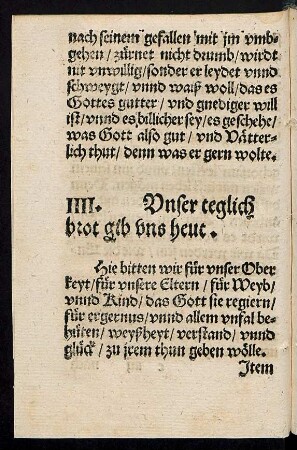 nach seinem gefallen mit jm vmb-
gehen/ zürnet nicht drumb/ wirdt
nit vnwillig/ sonder er leydet vnnd
schweygt/ vnnd waiß woll/ das es
Gottes gutter/ vnd gnediger will
ist/ vnnd es billicher sey/ es geschehe/
was Gott also gut/ vnd Vätter-
lich thut/ denn was er gern wolte.
IIII. Vnser teglich
brot gib vns heut.
Hie bitten wir für vnser Ober
keyt/ für vnsere Eltern/ für Weyb/
vnnd Kind/ das Gott sie regiern/
für ergernus/ vnnd allem vnfal be-
hüten/ weyßheyt/ verstand/ vnnd
glück/ zu jrem thun geben wölle.
Item